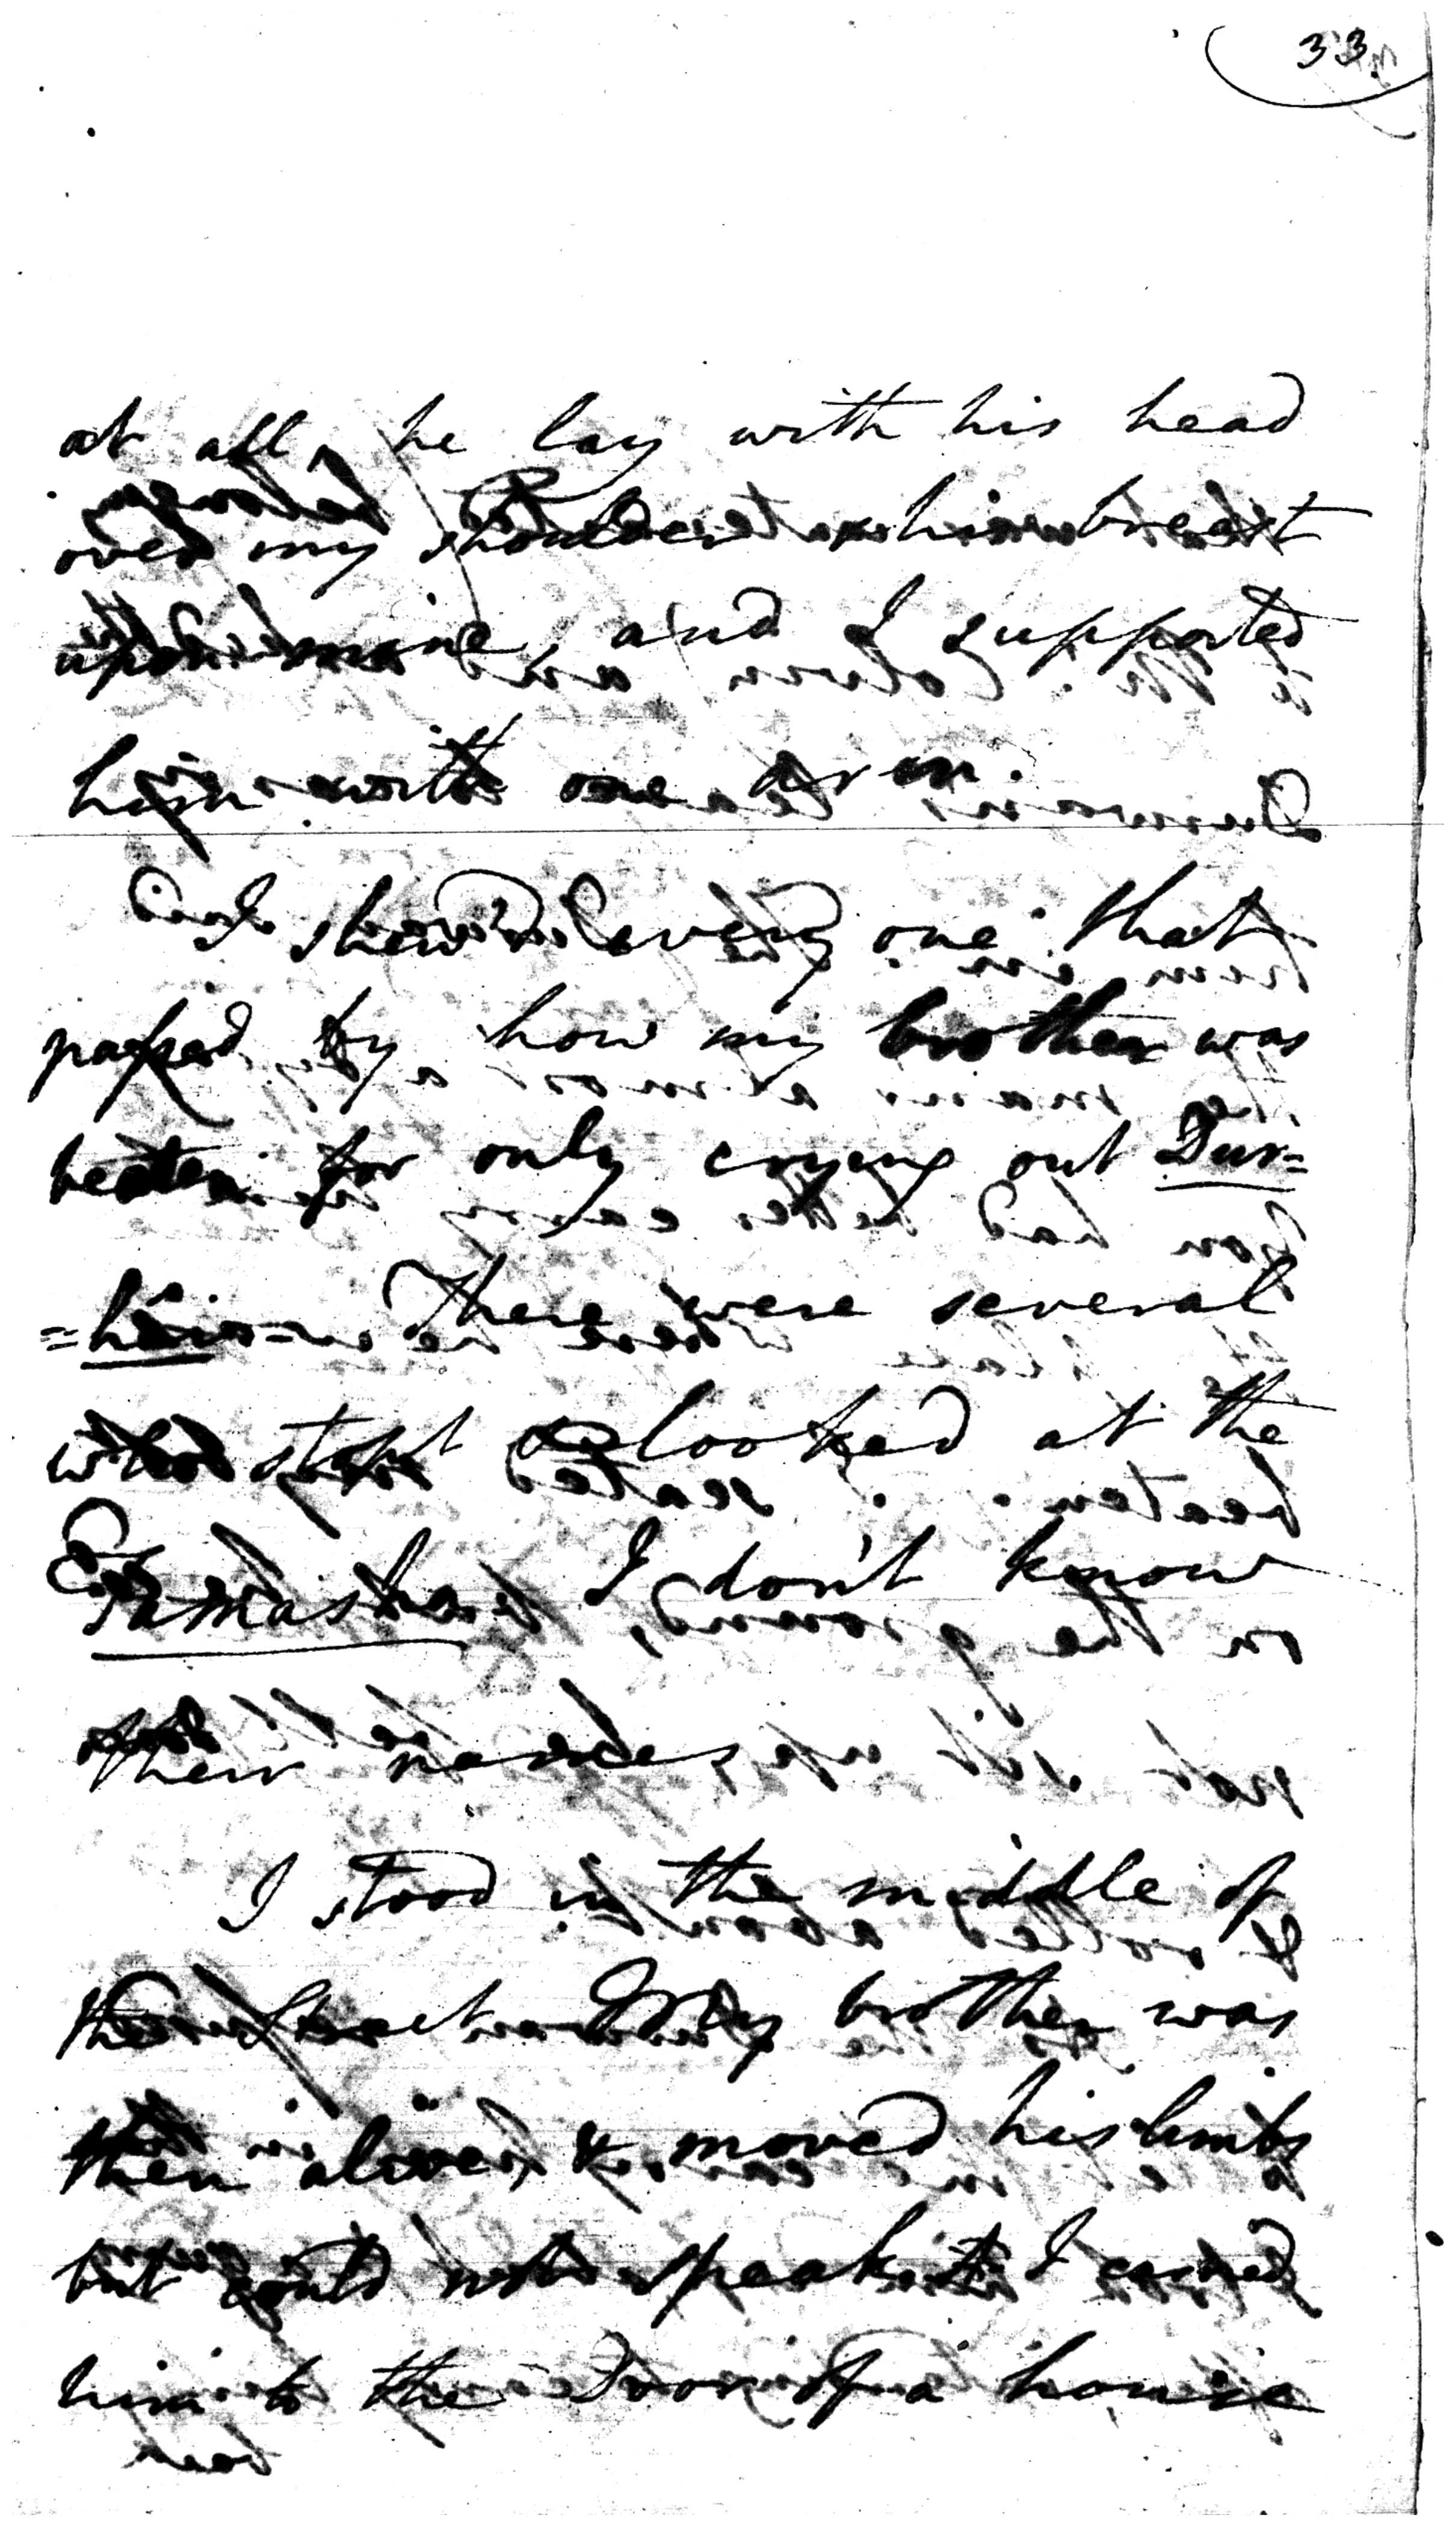 33.
at all, he lay with his head
over my shoulder & his breast
upon mine, and I supported
him with one arm.
I shew'd every one that
passed by how my brother was
beaten for only crying out Dur=
=hai= There were several
who stopt & looked at the
Tamasha. I don't know
their names.
I stood in the middle of
the street. My brother was
then alive, & moved his limbs
but could not speak. I carried
him to the Door of a house